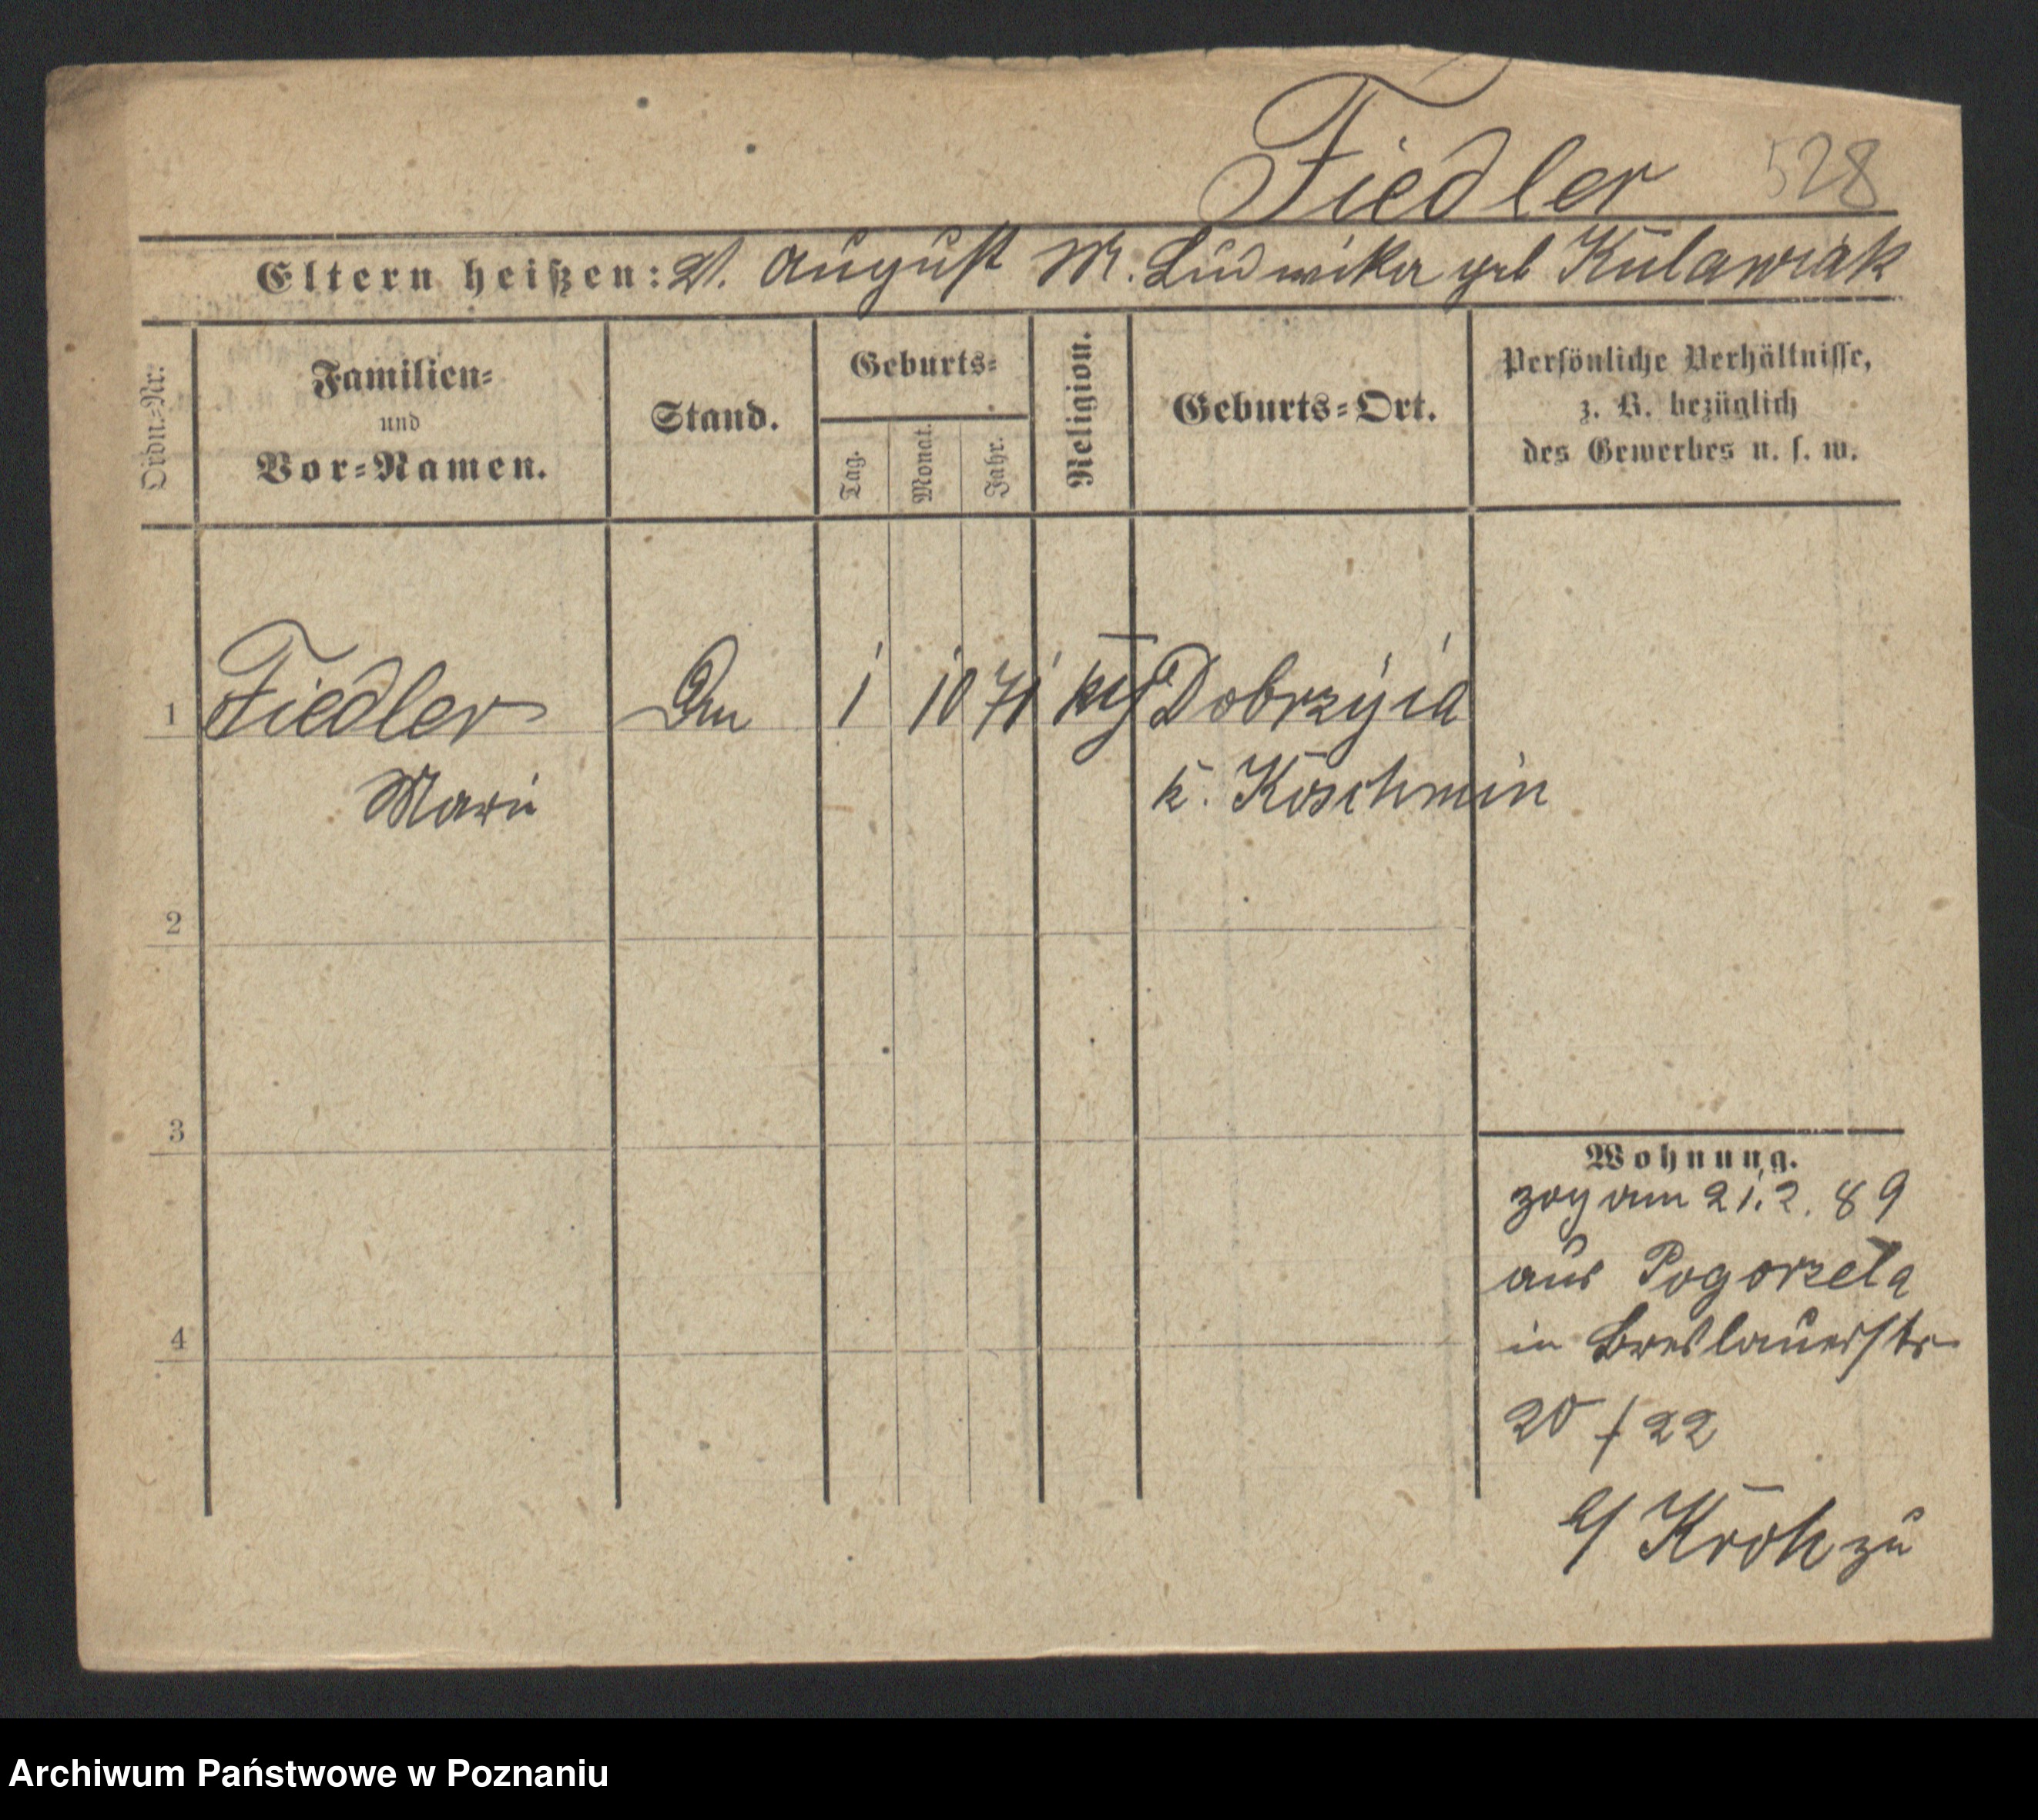 Fiedler 528
Eltern heißen: V. August M. Ludwika geb Kulawiak
Ordn.=Nr.
Familien=
und
Vor=Namen.
Stand.
Geburts=
Tag.
Monat.
Jahr.
Religion.
Geburts=Ort.
Persönliche Verhältnisse,
z. B. bezüglich
des Gewerbes u. s. w.
1 Fiedler 1 10 71 Dobrzyca
Marie k. Koschmin
2
3
4
Wohnung.
zog am 21.2.89
aus Pogorzela
in Breslauerstr
20/22
b/ Kroh zu
Archiwum Państwowe w Poznaniu